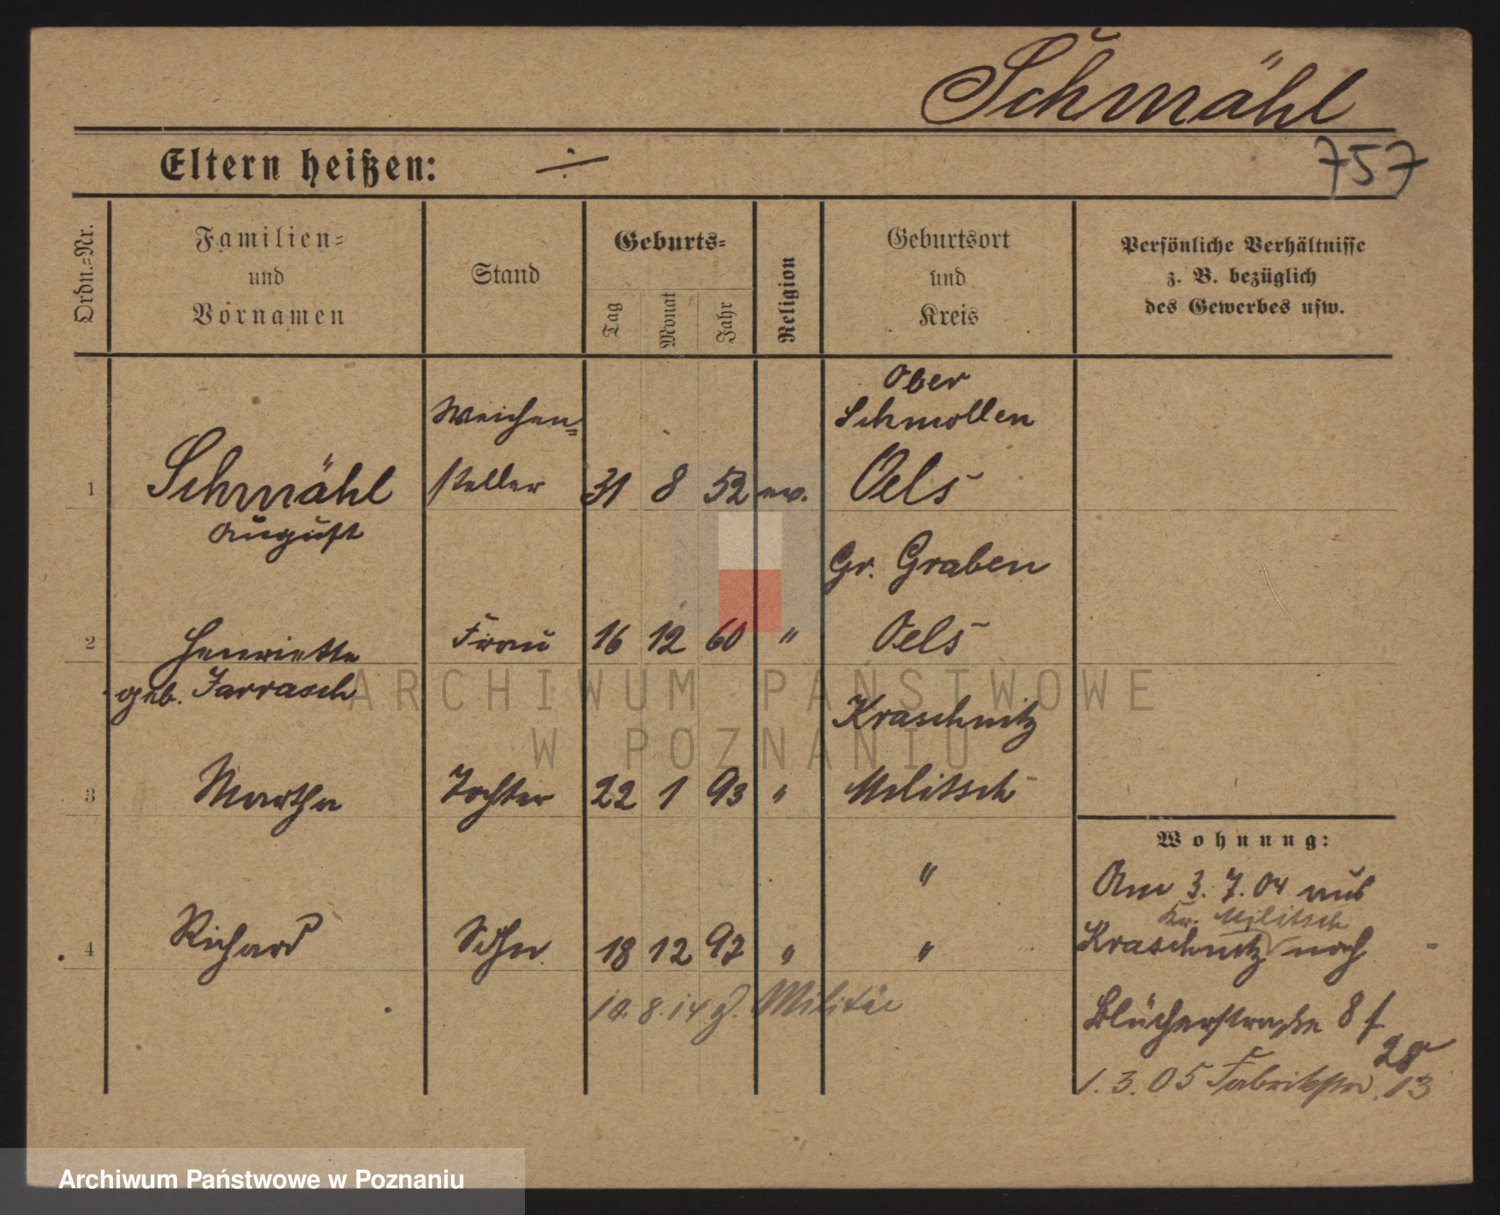 Schmähl
Eltern heißen: ÷
757
Ordn.=Nr.
Familien=
und
Vornamen
Stand
Geburts=
Tag
Monat
Jahr
Religion
Geburtsort
und
Kreis
Persönliche Verhältnisse
z. B. bezüglich
des Gewerbes usw.
Ober
Weichen= Schmollen
1 Schmähl steller 31 8 52 ev. Oels
August
Gr. Graben
2 Henriette Frau 16 12 60 " Oels
geb. Jarrasch
Kraschnitz
3 Martha Tochter 22 1 93 " Militsch
"
4 Richard Sohn 18 12 97 " "
10.8.14 z. Militär
Wohnung:
Am 3.7.04 aus
Kr. Militsch
Kraschnitz nach
Blücherstraße 8 f
28
1.3.05 Fabrikstr. 13
ARCHIWUM PAŃSTWOWE
W POZNANIU
Archiwum Państwowe w Poznaniu